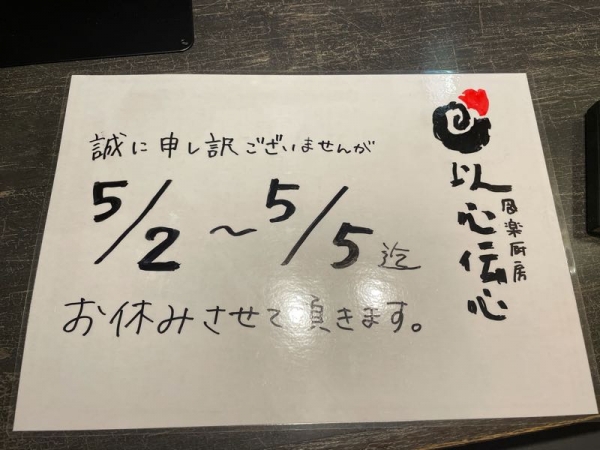 誠に申し訳ございませんが
5/2〜5/5迄
お休みさせて頂きます。
以心伝心
居楽厨房